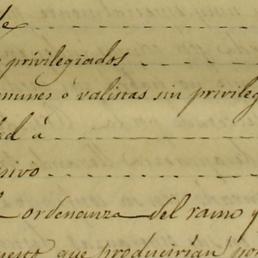 de
privilegiados
munes ó valistas sin privileg
dad á
sivo
l ordenanza del ramo y
uesto que producirian por